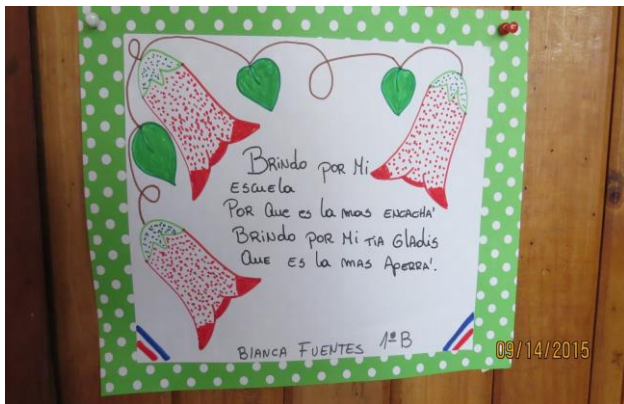 BRINDO POR MI
ESCUELA
POR QUE ES LA MAS ENCACHA'
BRINDO POR MI TIA GLADIS
QUE ES LA MAS APERRA'.
BIANCA FUENTES 1º B
09/14/2015